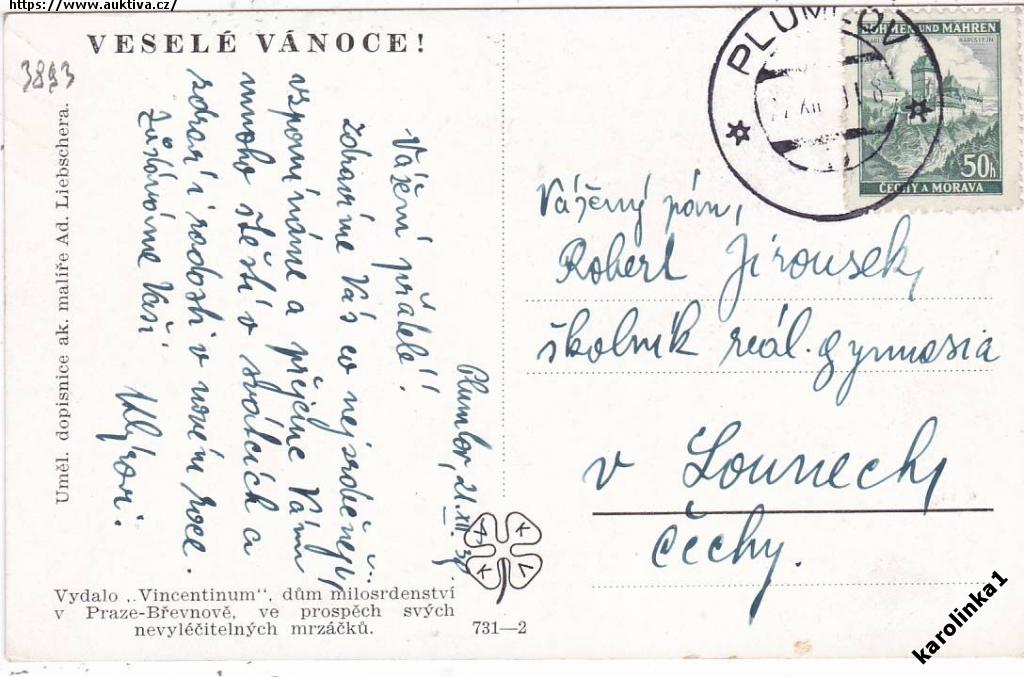 https://www.auktiva.cz/
VESELÉ VÁNOCE!
3893
Plumlov, 21.XII.39
Vážení přátelé!
Zdravíme Vás co nejsrdečněji,
vzpomínáme a přejeme Vám
mnoho štěstí v svátcích a
zdraví i radosti v novém roce.
Zůstáváme Vaši
Uměl. dopisnice ak. malíře Ad. Liebschera.
Vydalo „Vincentinum", dům milosrdenství
v Praze-Břevnově, ve prospěch svých
nevyléčitelných mrzáčků.
731—2
PLUMLOV
BÖHMEN UND MÄHREN
KARLSTEIN
50h
ČECHY A MORAVA
Vážený pán,
Robert Jirousek,
školník reál. gymnasia
v Lounech,
Čechy.
karolinka1